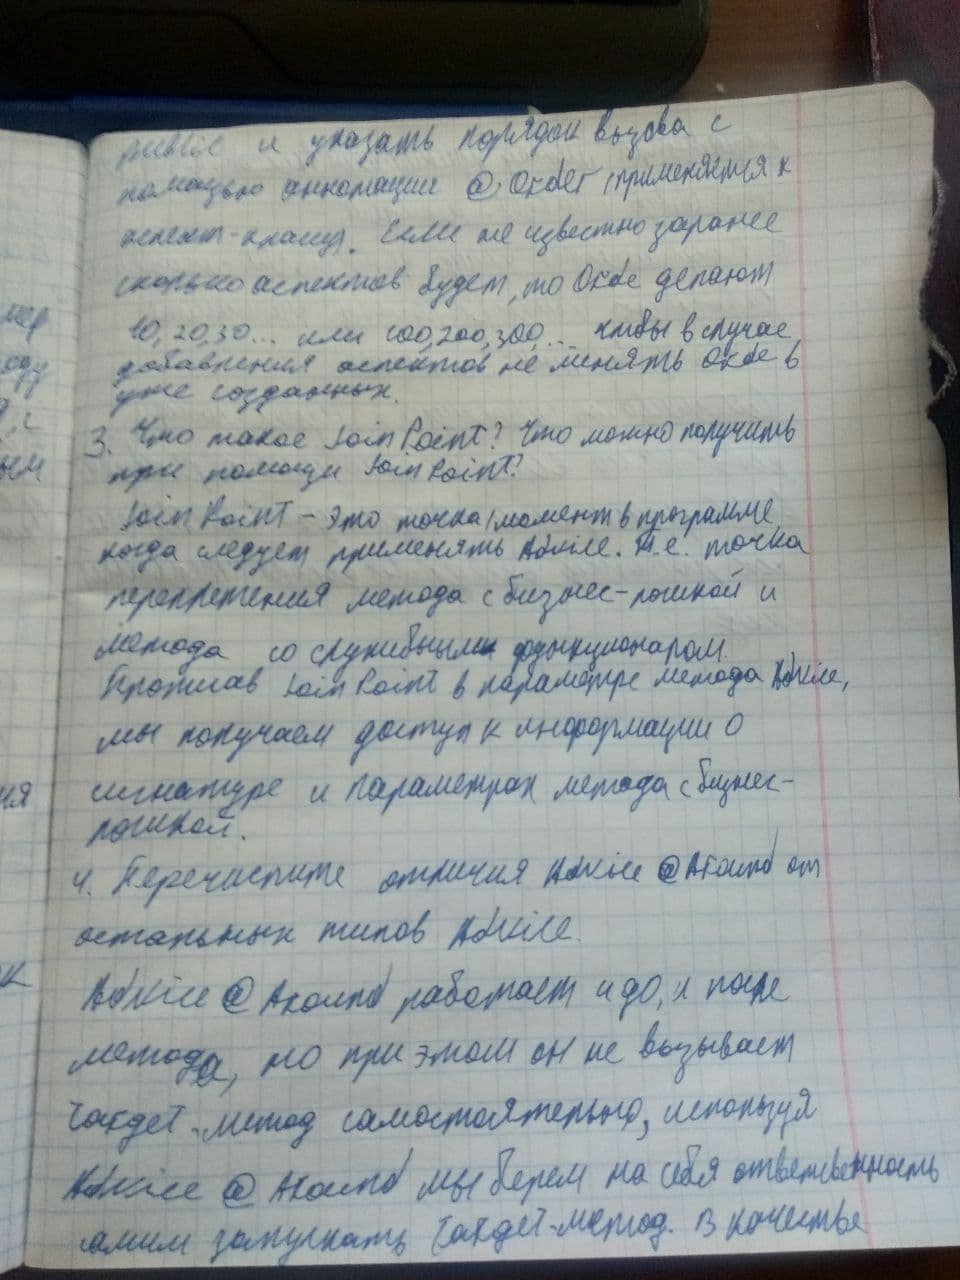 public и указать порядок вызова с
помощью аннотации @Order (применяется к
аспект-классу). Если не известно заранее
сколько аспектов будет, то Orde делают
10, 20, 30... или 100, 200, 300, ... чтобы в случае
добавления аспектов не менять Orde в
уже созданных.
3. Что такое Join Point? Что можно получить
при помощи Join Point?
Join Point - это точка/момент в программе,
когда следует применять Advice. Т.е. точка
переплетения метода с бизнес-логикой и
метода со служебным функционалом.
Прописав Join Point в параметре метода Advice,
мы получаем доступ к информации о
сигнатуре и параметрах метода с бизнес-
логикой.
4. Перечислите отличия Advice @Around от
остальных типов Advice.
Advice @Around работает и до, и после
метода, но при этом он не вызывает
Target-метод самостоятельно, используя
Advice @Around мы берем на себя ответственность
самим запускать Target-метод. В качестве
мер
оду
с
ым
ия
к